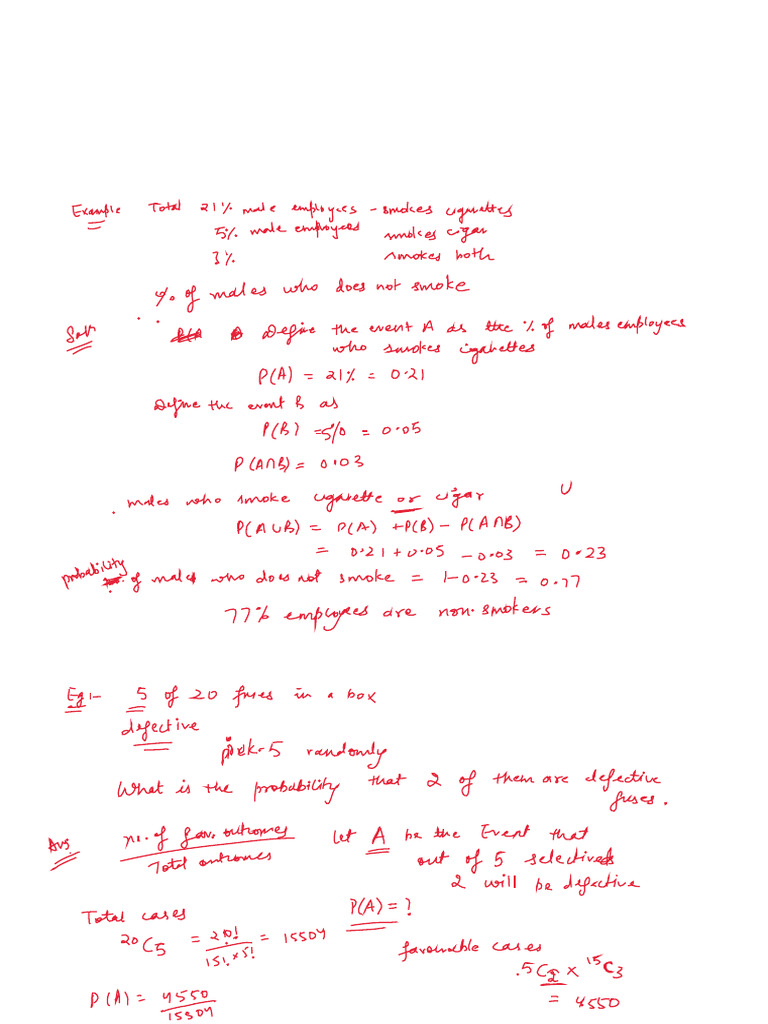 Example Total 21% male employees - smokes cigarettes
5% male employees smokes cigar
3% smokes both
% of males who does not smoke
Soln Define the event A as the % of males employees
who smokes cigarettes
P(A) = 21% = 0.21
Define the event B as
P(B) = 5% = 0.05
P(A∩B) = 0.03
males who smoke cigarette or cigar U
P(A∪B) = P(A) + P(B) - P(A∩B)
= 0.21 + 0.05 - 0.03 = 0.23
probability of males who does not smoke = 1-0.23 = 0.77
77% employees are non-smokers
Eg:- 5 of 20 fuses in a box
defective
pick 5 randomly
What is the probability that 2 of them are defective
fuses.
Ans. no. of fav. outcomes Let A be the Event that
Total outcomes out of 5 selectives
2 will be defective
Total cases P(A) = ?
20C5 = 20!/15!×5! = 15504 favourable cases
5C2 × 15C3
P(A) = 4550/15504 = 4550